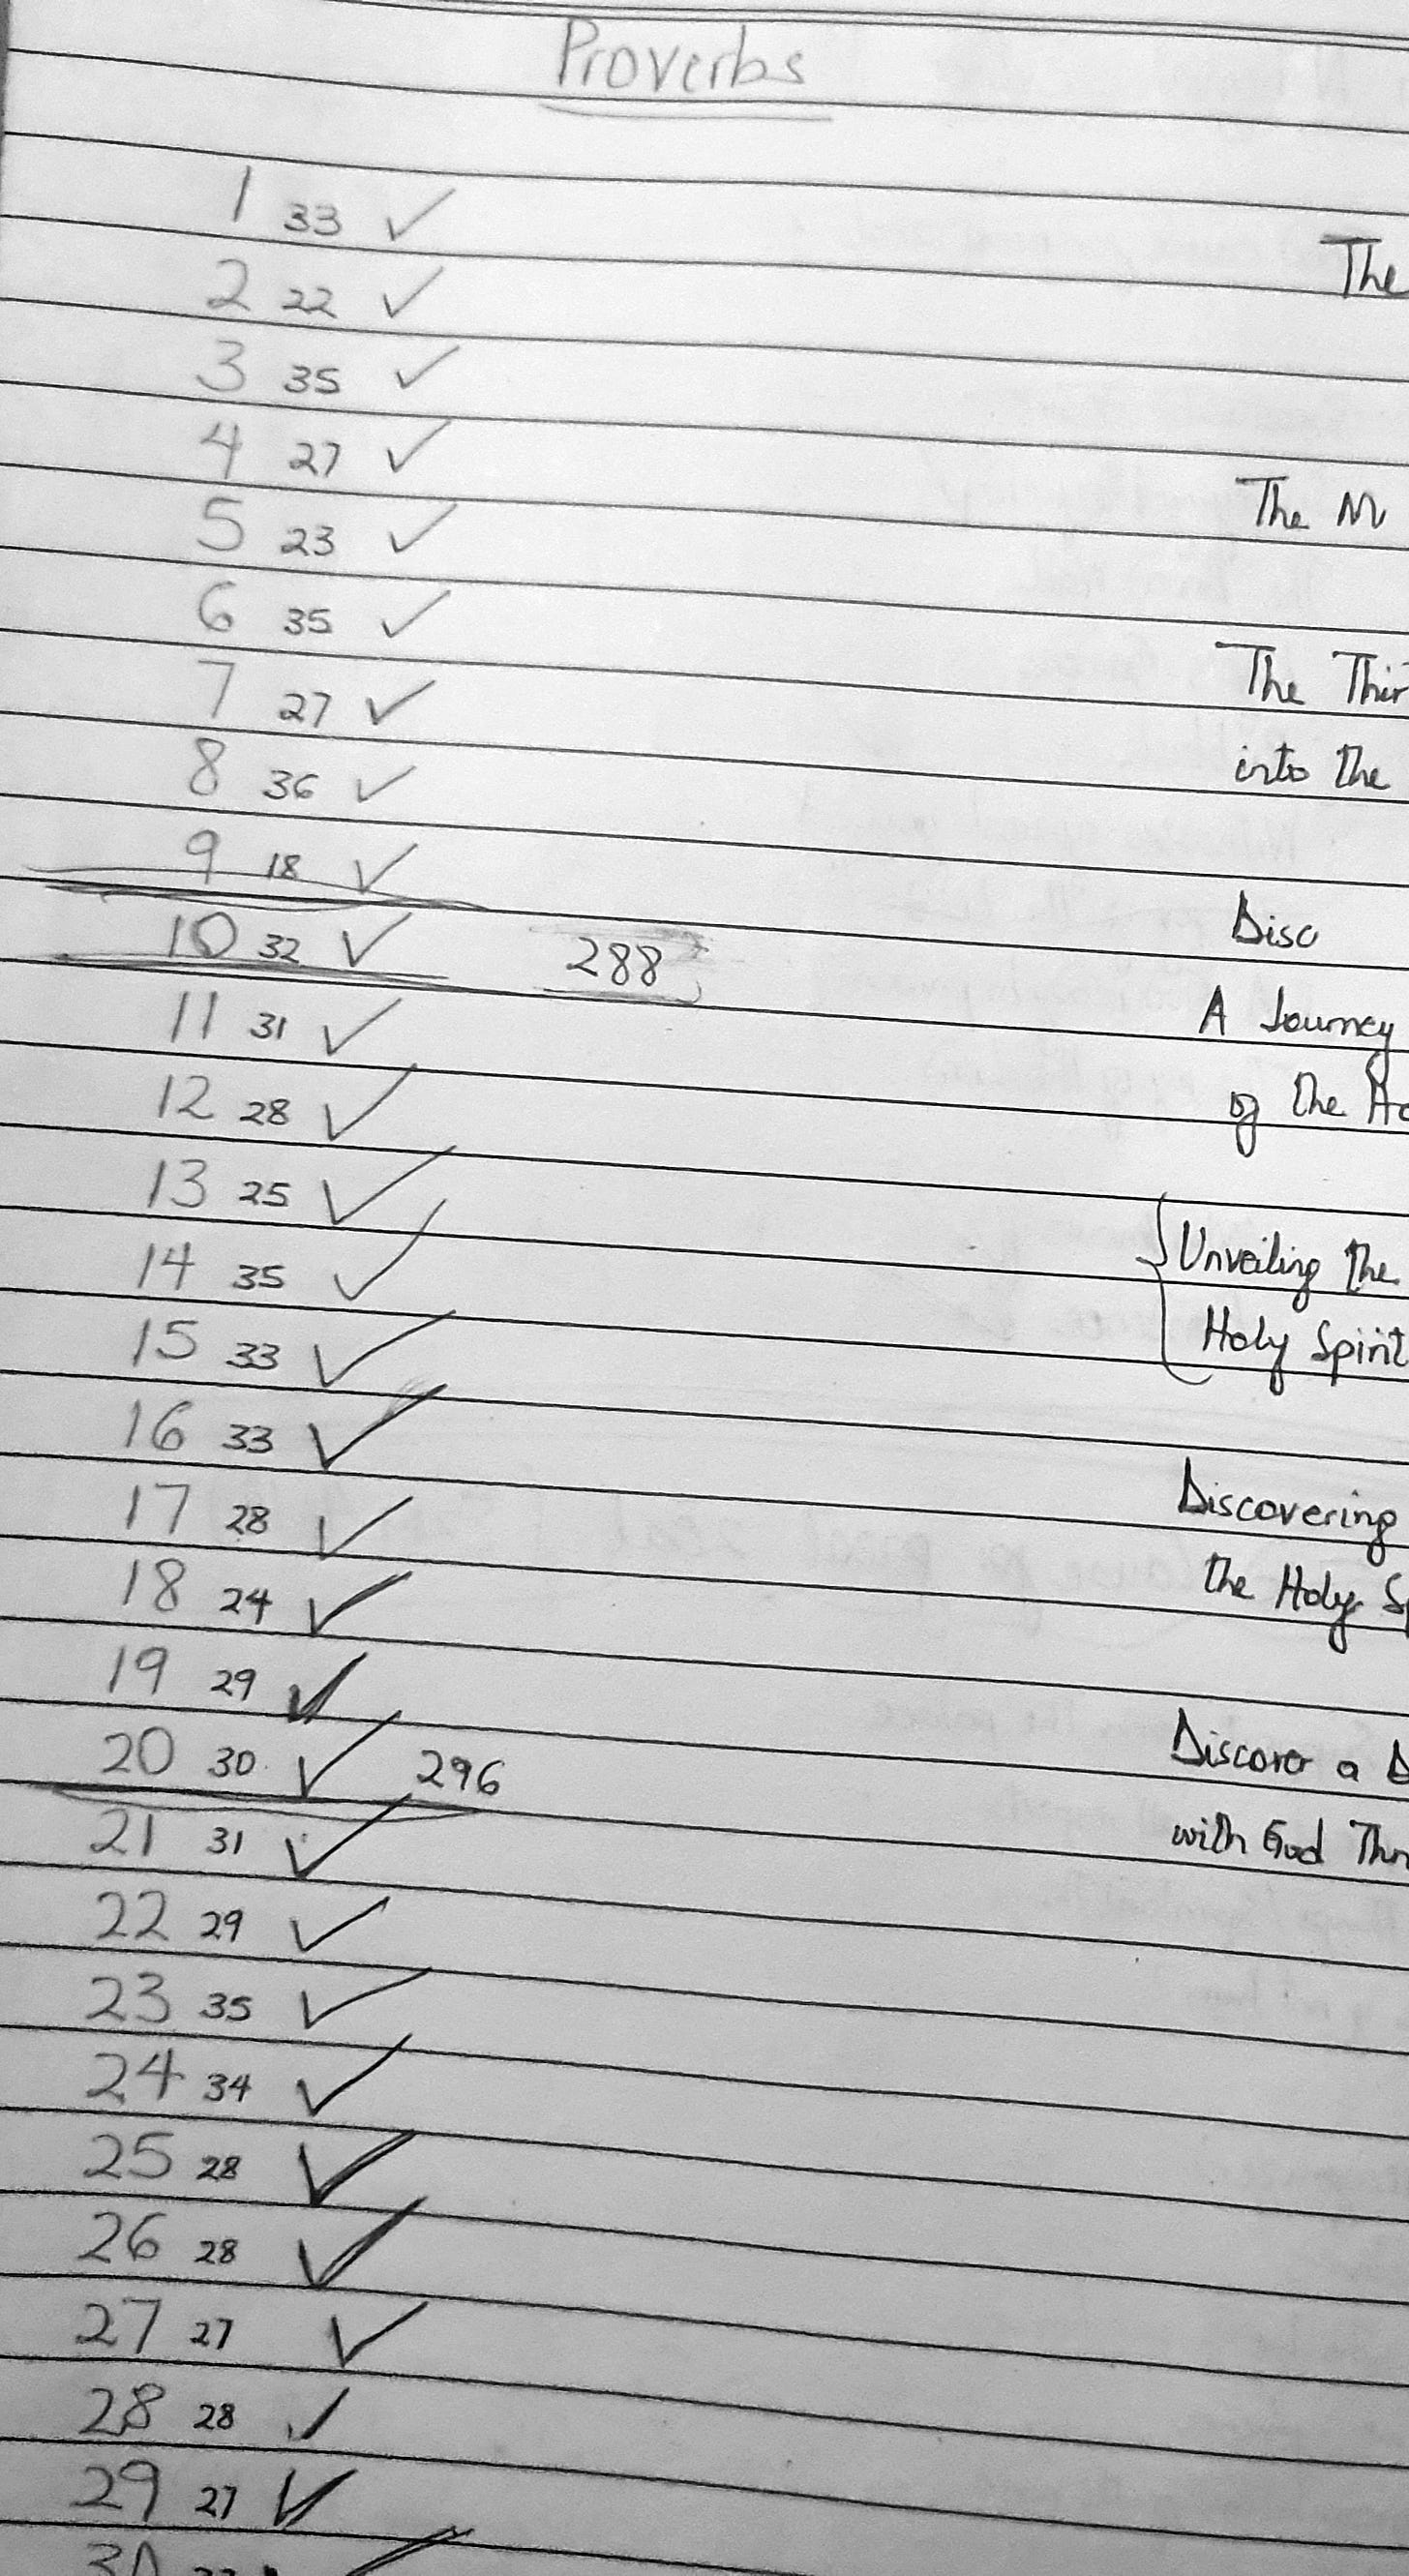 Proverbs
1 33 ✓
2 22 ✓
3 35 ✓
4 27 ✓
5 23 ✓
6 35 ✓
7 27 ✓
8 36 ✓
9 18 ✓
10 32 ✓ 288
11 31 ✓
12 28 ✓
13 25 ✓
14 35 ✓
15 33 ✓
16 33 ✓
17 28 ✓
18 24 ✓
19 29 ✓
20 30 ✓ 296
21 31 ✓
22 29 ✓
23 35 ✓
24 34 ✓
25 28 ✓
26 28 ✓
27 27 ✓
28 28 ✓
29 27 ✓
30
The
The M
The Thir
into the
Disc
A Journey
of the Ho
Unveiling the
Holy Spirit
Discovering
the Holy Sp
Discover a D
with God Thr